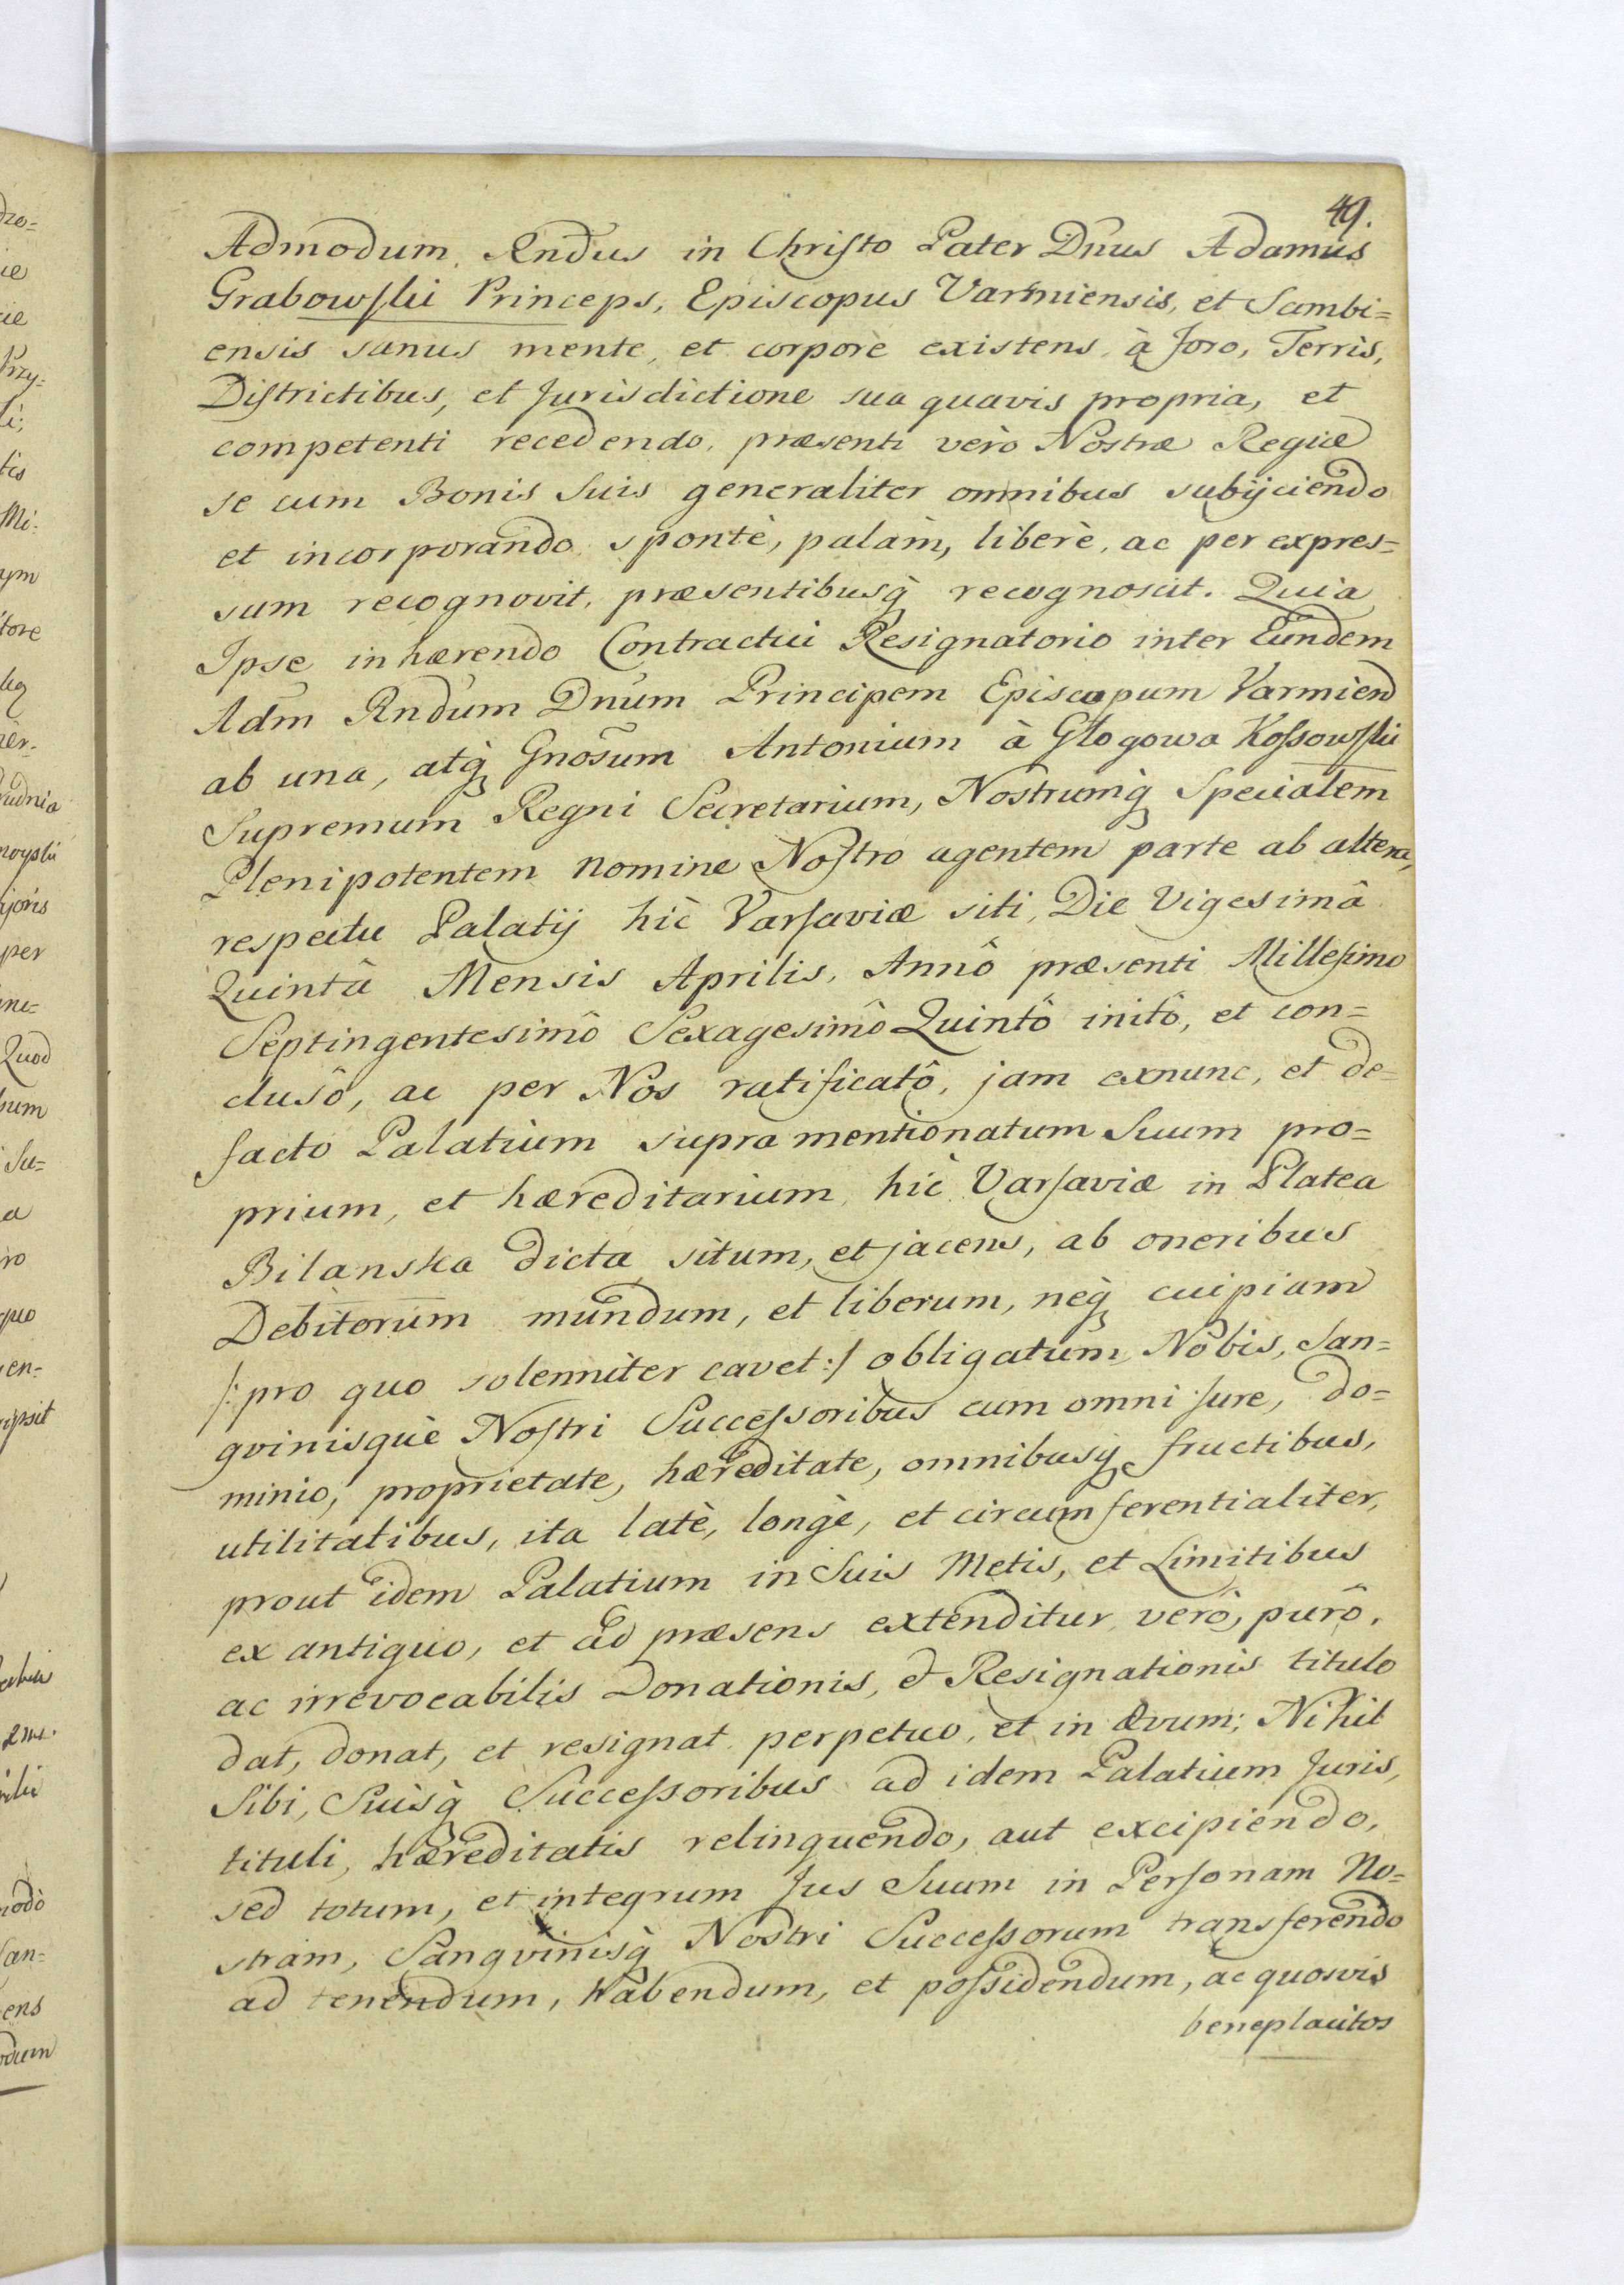 49.
Admodum Rndus in Christo Pater Dnus Adamus
Grabowski Princeps, Episcopus Varmiensis, et Sambi=
ensis sanus mente, et corporè existens à foro, Terris,
Districtibus, et Jurisdictione sua quavis propria, et
competenti recedendo, præsenti verò Nostræ Regiæ
se cum Bonis Suis generaliter omnibus subijciendo
et incorporando spontè, palàm, liberè, ac per expres=
sum recognovit, præsentibusq̀ recognoscit. Quia
Ipse inhærendo Contractui Resignatorio inter Eundem
Adm Rndum Dnum Principem Episcopum Varmien
ab una, atq̀ Gnosum Antonium à Głogowa Kossowski
Supremum Regni Secretarium, Nostrumq̀ Specialem
Plenipotentem nomine Nostro agentem parte ab altera,
respectu Palatij hìc Varsaviæ siti, Die Vigesimâ
Quintâ Mensis Aprilis, Annô præsenti Millesimo
Septingentesimô Sexagesimô Quintô initô, et con=
clusô, ac per Nos ratificatô, jam exnunc, et de=
facto Palatium supra mentionatum Suum pro=
prium, et hæreditarium, hìc Varsaviæ in Platea
Bilanska dicta situm, et jacens, ab oneribus
Debitorum mundum, et liberum, neq̀ cuipiam
/: pro quo solenniter cavet :/ obligatum, Nobis, San=
gvinisquè Nostri Successoribus cum omni jure, do=
minio, proprietate, hæreditate, omnibusq̀ fructibus,
utilitatibus, ita latè, longè, et circumferentialiter,
prout idem Palatium in Suis Metis, et Limitibus
ex antiquo, et ad præsens extenditur, verô, purô,
ac irrevocabilis Donationis, & Resignationis titulo
dat, donat, et resignat perpetuo, et in ævum; Nihil
Sibi, Suisq̀ Successoribus ad idem Palatium Juris,
tituli, hæreditatis relinquendo, aut excipiendo,
sed totum, et integrum Jus Suum in Personam No=
stram, Sangvinisq̀ Nostri Successorum transferendo
ad tenendum, habendum, et possidendum, ac quosvis
beneplacitos